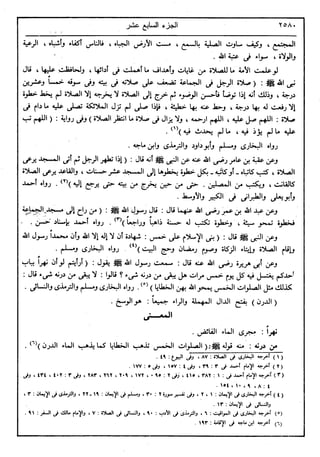 ٢٥٨٠ الجزء السابع عشر
المجتمع ، وكيف ساوت الصلاة بالسمع ، مست الأرض الجباه ، فالناس أكفاء وأشباه ، الرعية
والولاة ، سواء في عتبة الله .
لو علمت الأمة ما للصلاة من غايات وأهداف ما أهملت في أدائها ، ولحافظت عليها ، قال
نبي الله ﷺ : ( صلاة الرجل في الجماعة تضعف على صلاته في بيته وفي سوقه خمساً وعشرين
درجة ، وذلك أنه إذا توضأ فأحسن الوضوء ثم خرج إلى الصلاة لا يخرجه إلا الصلاة لم يخط خطوة
إلا رفعت له بها درجة ، وحط عنه بها خطيئة ، فإذا صلى لم تزل الملائكة تصلي عليه ما دام في
صلاة : اللهم صل عليه ، اللهم ارحمه ، ولا يزال في صلاة ما انتظر الصلاة ) وفي رواية : ( اللهم تب
عليه ما لم يؤذ فيه ، ما لم يحدث فيه )(١) .
رواه البخاري ومسلم وأبو داود والترمذي وابن ماجه .
وعن عقبة بن عامر رضي الله عنه عن النبي ﷺ أنه قال : ( إذا تطهر الرجل ثم أتى المسجد يرعى
الصلاة ، كتب له كاتباه ، أو كاتبه ، بكل خطوة يخطوها إلى المسجد عشر حسنات ، والقاعد يرعى الصلاة
كالقانت ، ويكتب من المصلين . حتى من حين يخرج من بيته حتى يرجع إليه )(٢) . رواه أحمد
وأبو يعلى والطبراني في الكبير والأوسط .
وعن عبد الله بن عمر رضي الله عنهما قال : قال رسول الله ﷺ : ( من راح إلى مسجد الجماعة
فخطوة تمحو سيئة ، وخطوة تكتب له حسنة ذاهباً وراجعاً )(٣) . رواه أحمد بإسناد حسن .
وعن النبي ﷺ قال : ( بني الإسلام على خمس : شهادة أن لا إله إلا الله وأن محمداً رسول الله
وإقام الصلاة وإيتاء الزكاة وصوم رمضان وحج البيت )(٤) رواه البخاري ومسلم .
وعن أبي هريرة رضي الله عنه قال : سمعت رسول الله ﷺ يقول : ( أرأيتم لو أن نهراً بباب
أحدكم يغتسل فيه كل يوم خمس مرات هل يبقى من درنه شيء ؟ قالوا : لا يبقى من درنه شيء قال :
كذلك مثل الصلوات الخمس يمحو الله بهن الخطايا )(٥) رواه البخاري ومسلم والترمذي والنسائي .
( الدرن ) بفتح الدال المهملة والراء جميعاً : هو الوسخ .
المعنى
نهراً : مجرى الماء الفائض .
من درنه : منه قوله ﷺ : ( الصلوات الخمس تذهب الخطايا كما يذهب الماء الدرن )(٦) .
(١) أخرجه البخاري في الصلاة : ٨٧ ، وفي البيوع : ٤٩ .
(٢) أخرجه الإمام أحمد في
(٣) أخرجه الإمام أحمد في
(٤) أخرجه البخاري في الإيمان : ١ ، ٢
والنسائي في الإيمان : ١٣ .
(٥) أخرجه البخاري في المواقيت : ٦ ، والترمذي في الأدب : ٩٠ ، والنسائي في الصلاة : ٧ ، والإمام مالك في السفر : ٩١ .
(٦) أخرجه ابن ماجه في الإقامة : ١٩٣ .